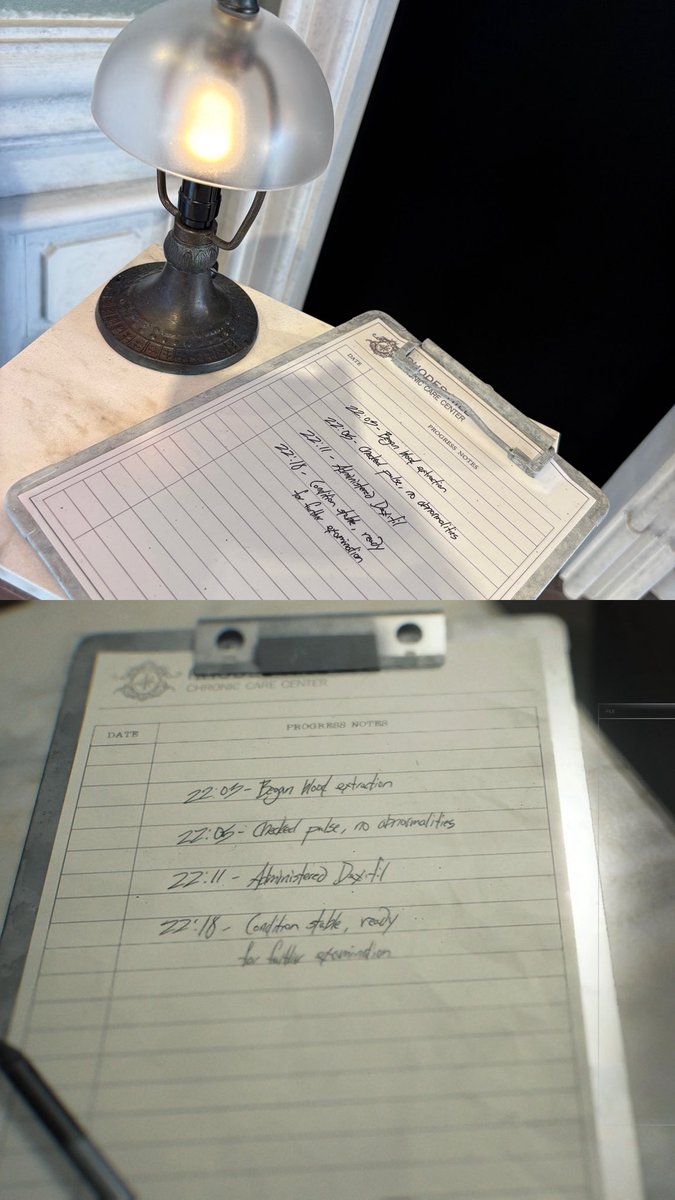 RHODES
CHRONIC CARE CENTER
DATE
PROGRESS NOTES
22:03 - Began blood extraction
22:06 - Checked pulse, no abnormalities
22:11 - Administered Daxifil
22:18 - Condition stable, ready
for further examination
CHRONIC CARE CENTER
DATE
PROGRESS NOTES
22:03 - Began blood extraction
22:06 - Checked pulse, no abnormalities
22:11 - Administered Daxifil
22:18 - Condition stable, ready
for further examination
FILE